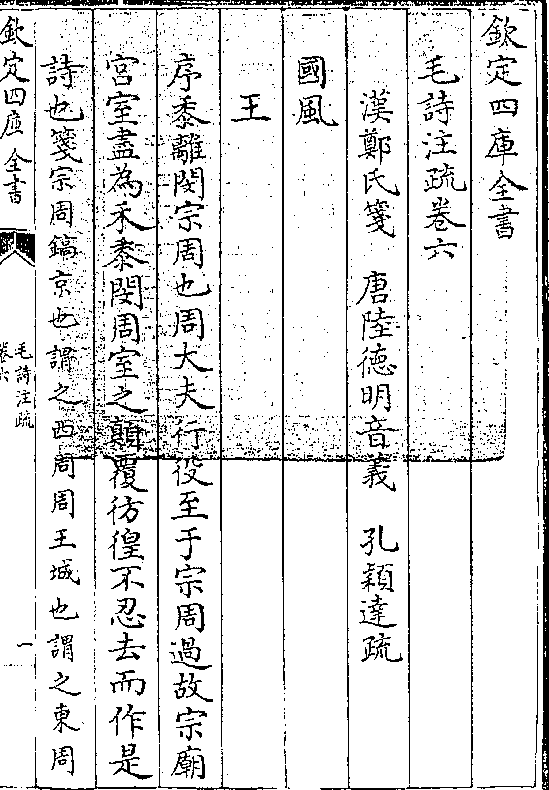 欽定四庫全書
毛詩注疏卷六
漢鄭氏箋　唐陸德明音義　孔穎達疏
國風
王
序黍離閔宗周也周大夫行役至于宗周過故宗廟
宮室盡為禾黍閔周室之顛覆彷徨不忍去而作是
詩也箋宗周鎬京也謂之西周周王城也謂之東周
欽定四庫全書
毛詩注疏
卷六
一